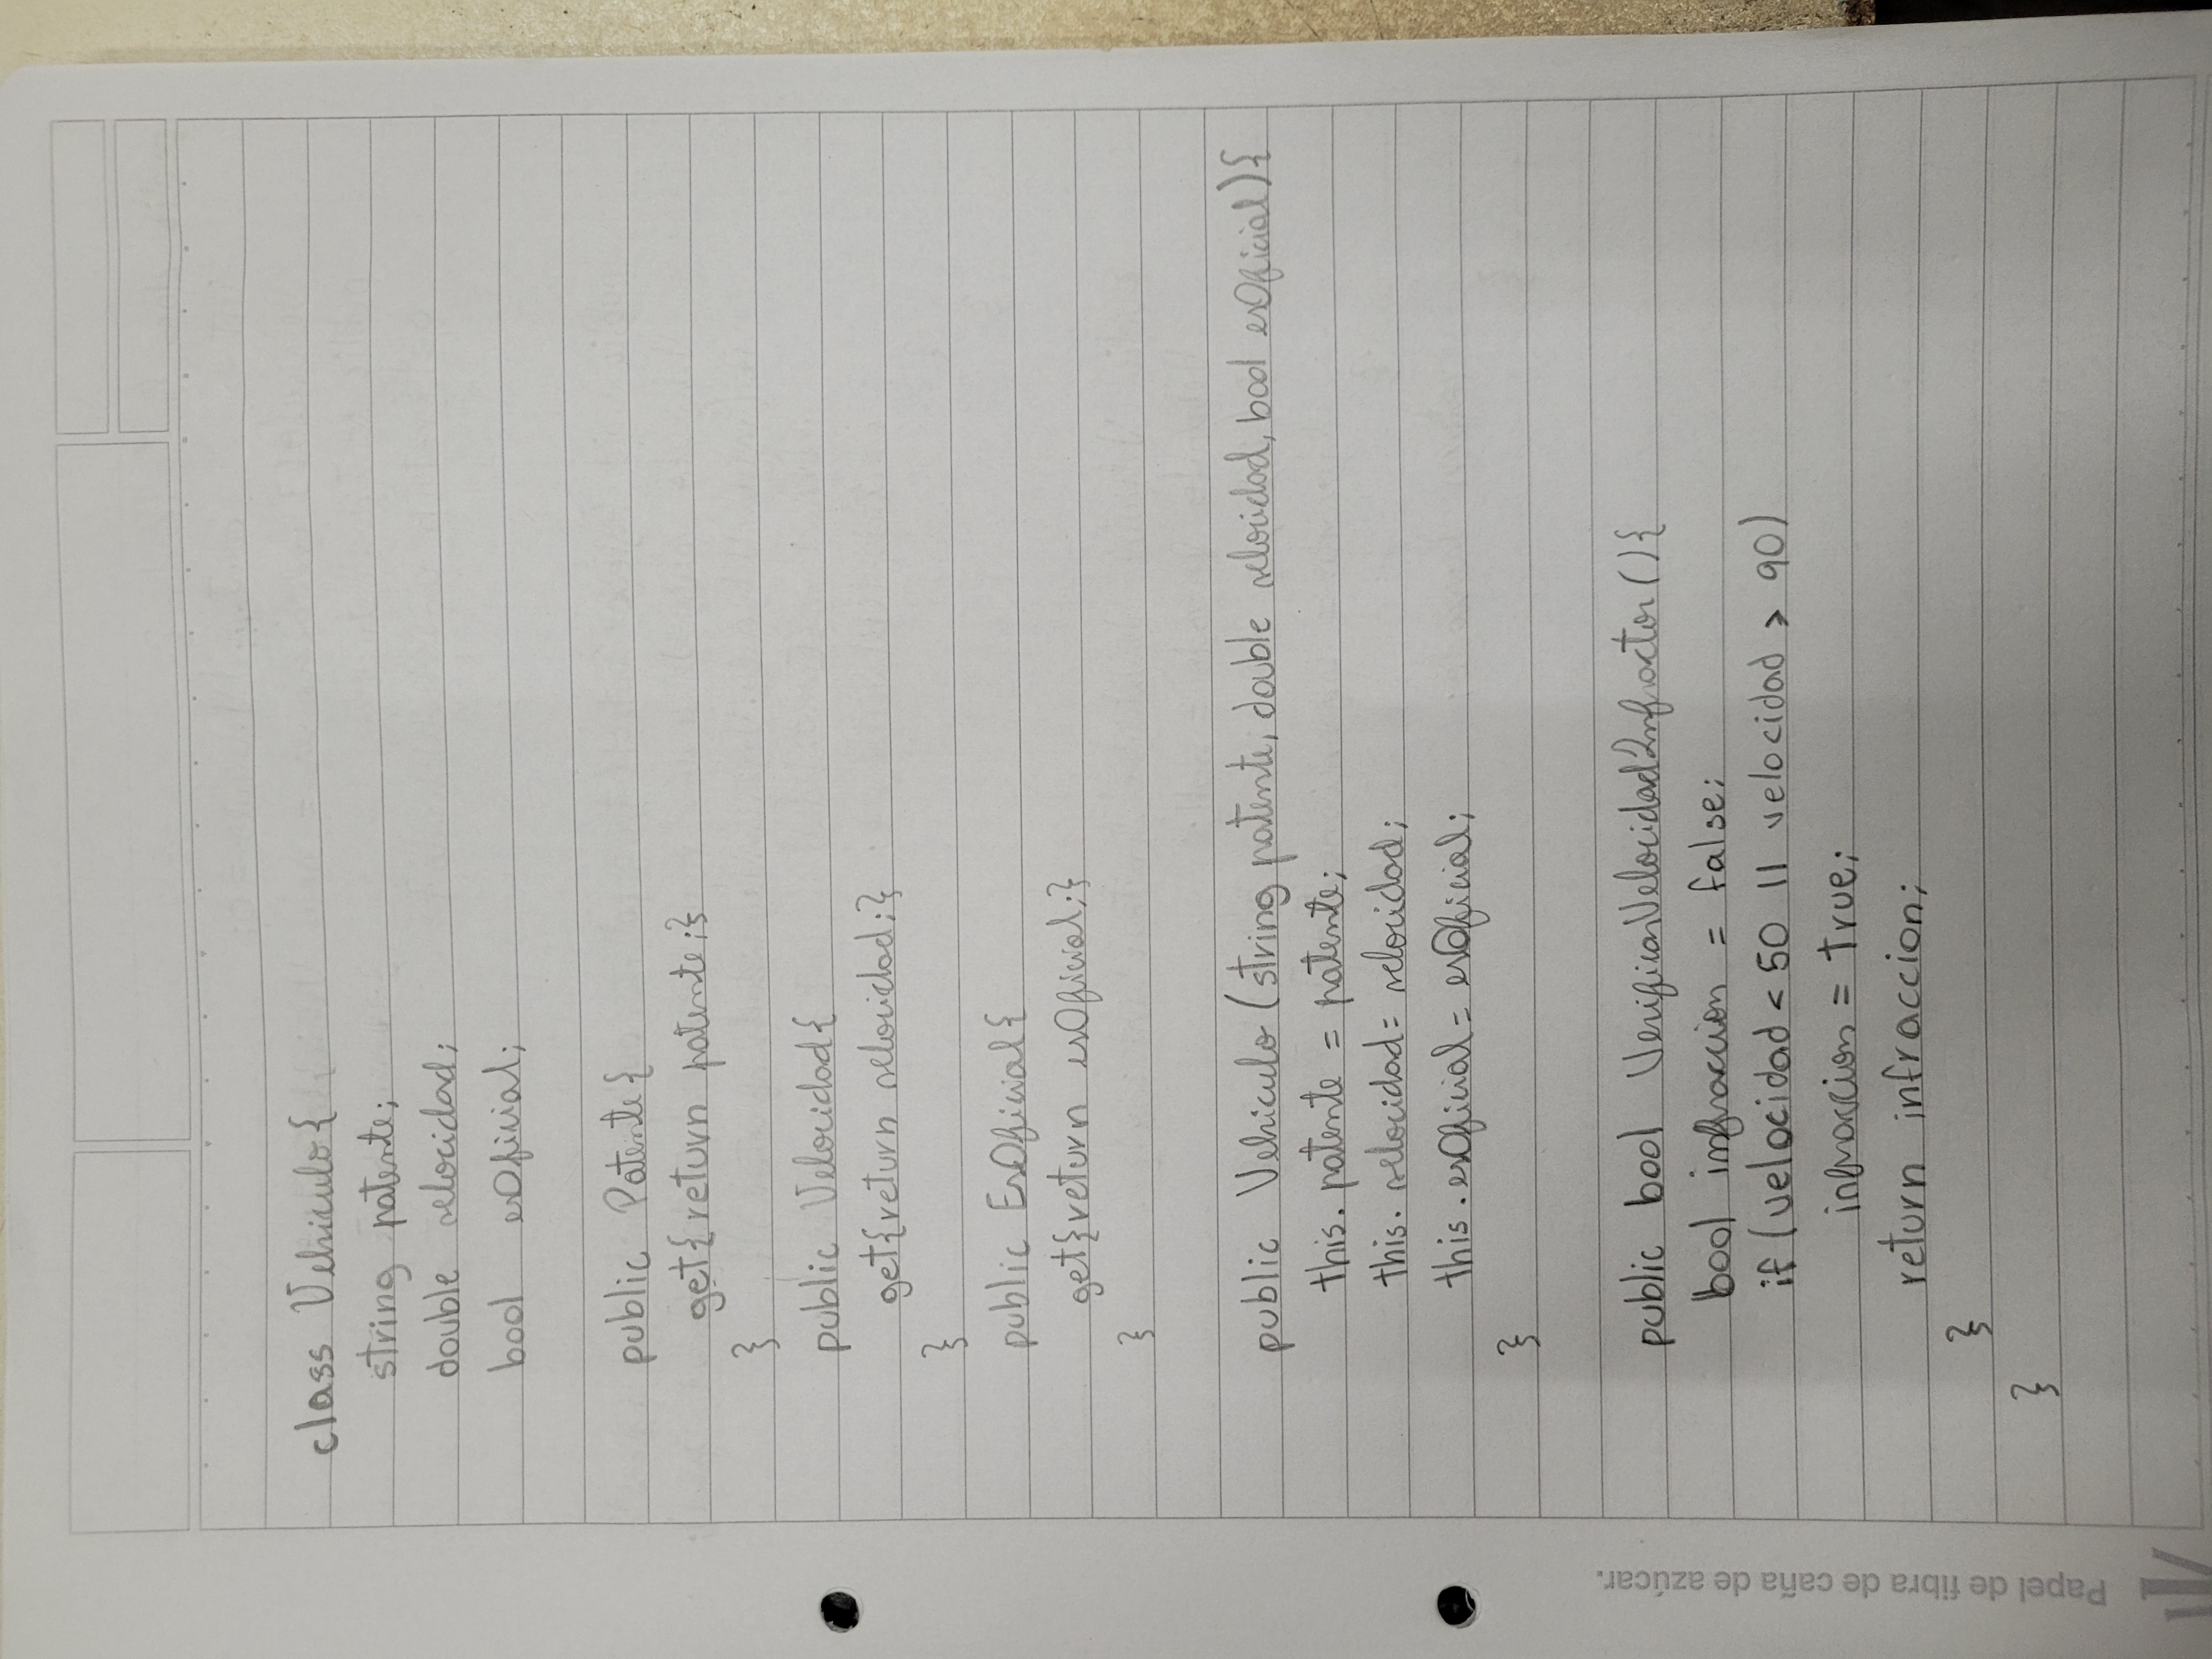 class Vehiculo{
string patente;
double velocidad;
bool esOficial;
public Patente{
get{return patente;}
}
public Velocidad{
get{return velocidad;}
}
public EsOficial{
get{return esOficial;}
}
public Vehiculo (string patente, double velocidad, bool esOficial){
this.patente = patente;
this.velocidad = velocidad;
this.esOficial = esOficial;
}
public bool VerificarVelocidadInfractor(){
bool infraccion = false;
if (velocidad < 50 || velocidad > 90)
infraccion = true;
return infraccion;
}
}
Papel de fibra de caña de azúcar.